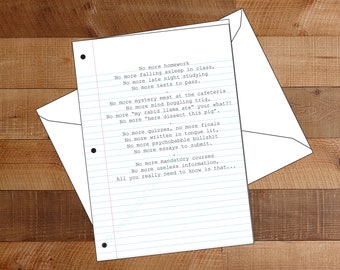 No more homework
No more falling asleep in class,
No more late night studying
No more tests to pass.
-
No more mystery meat at the cafeteria
No more mind boggling trig,
No more "my rabid llama ate" your what?!
No more "here dissect this pig".
-
No more quizzes, no more finals
No more written in tongue lit,
No more psychobabble bullshit
No more essays to submit.
-
No more mandatory courses
No more useless information,
All you really need to know is that...